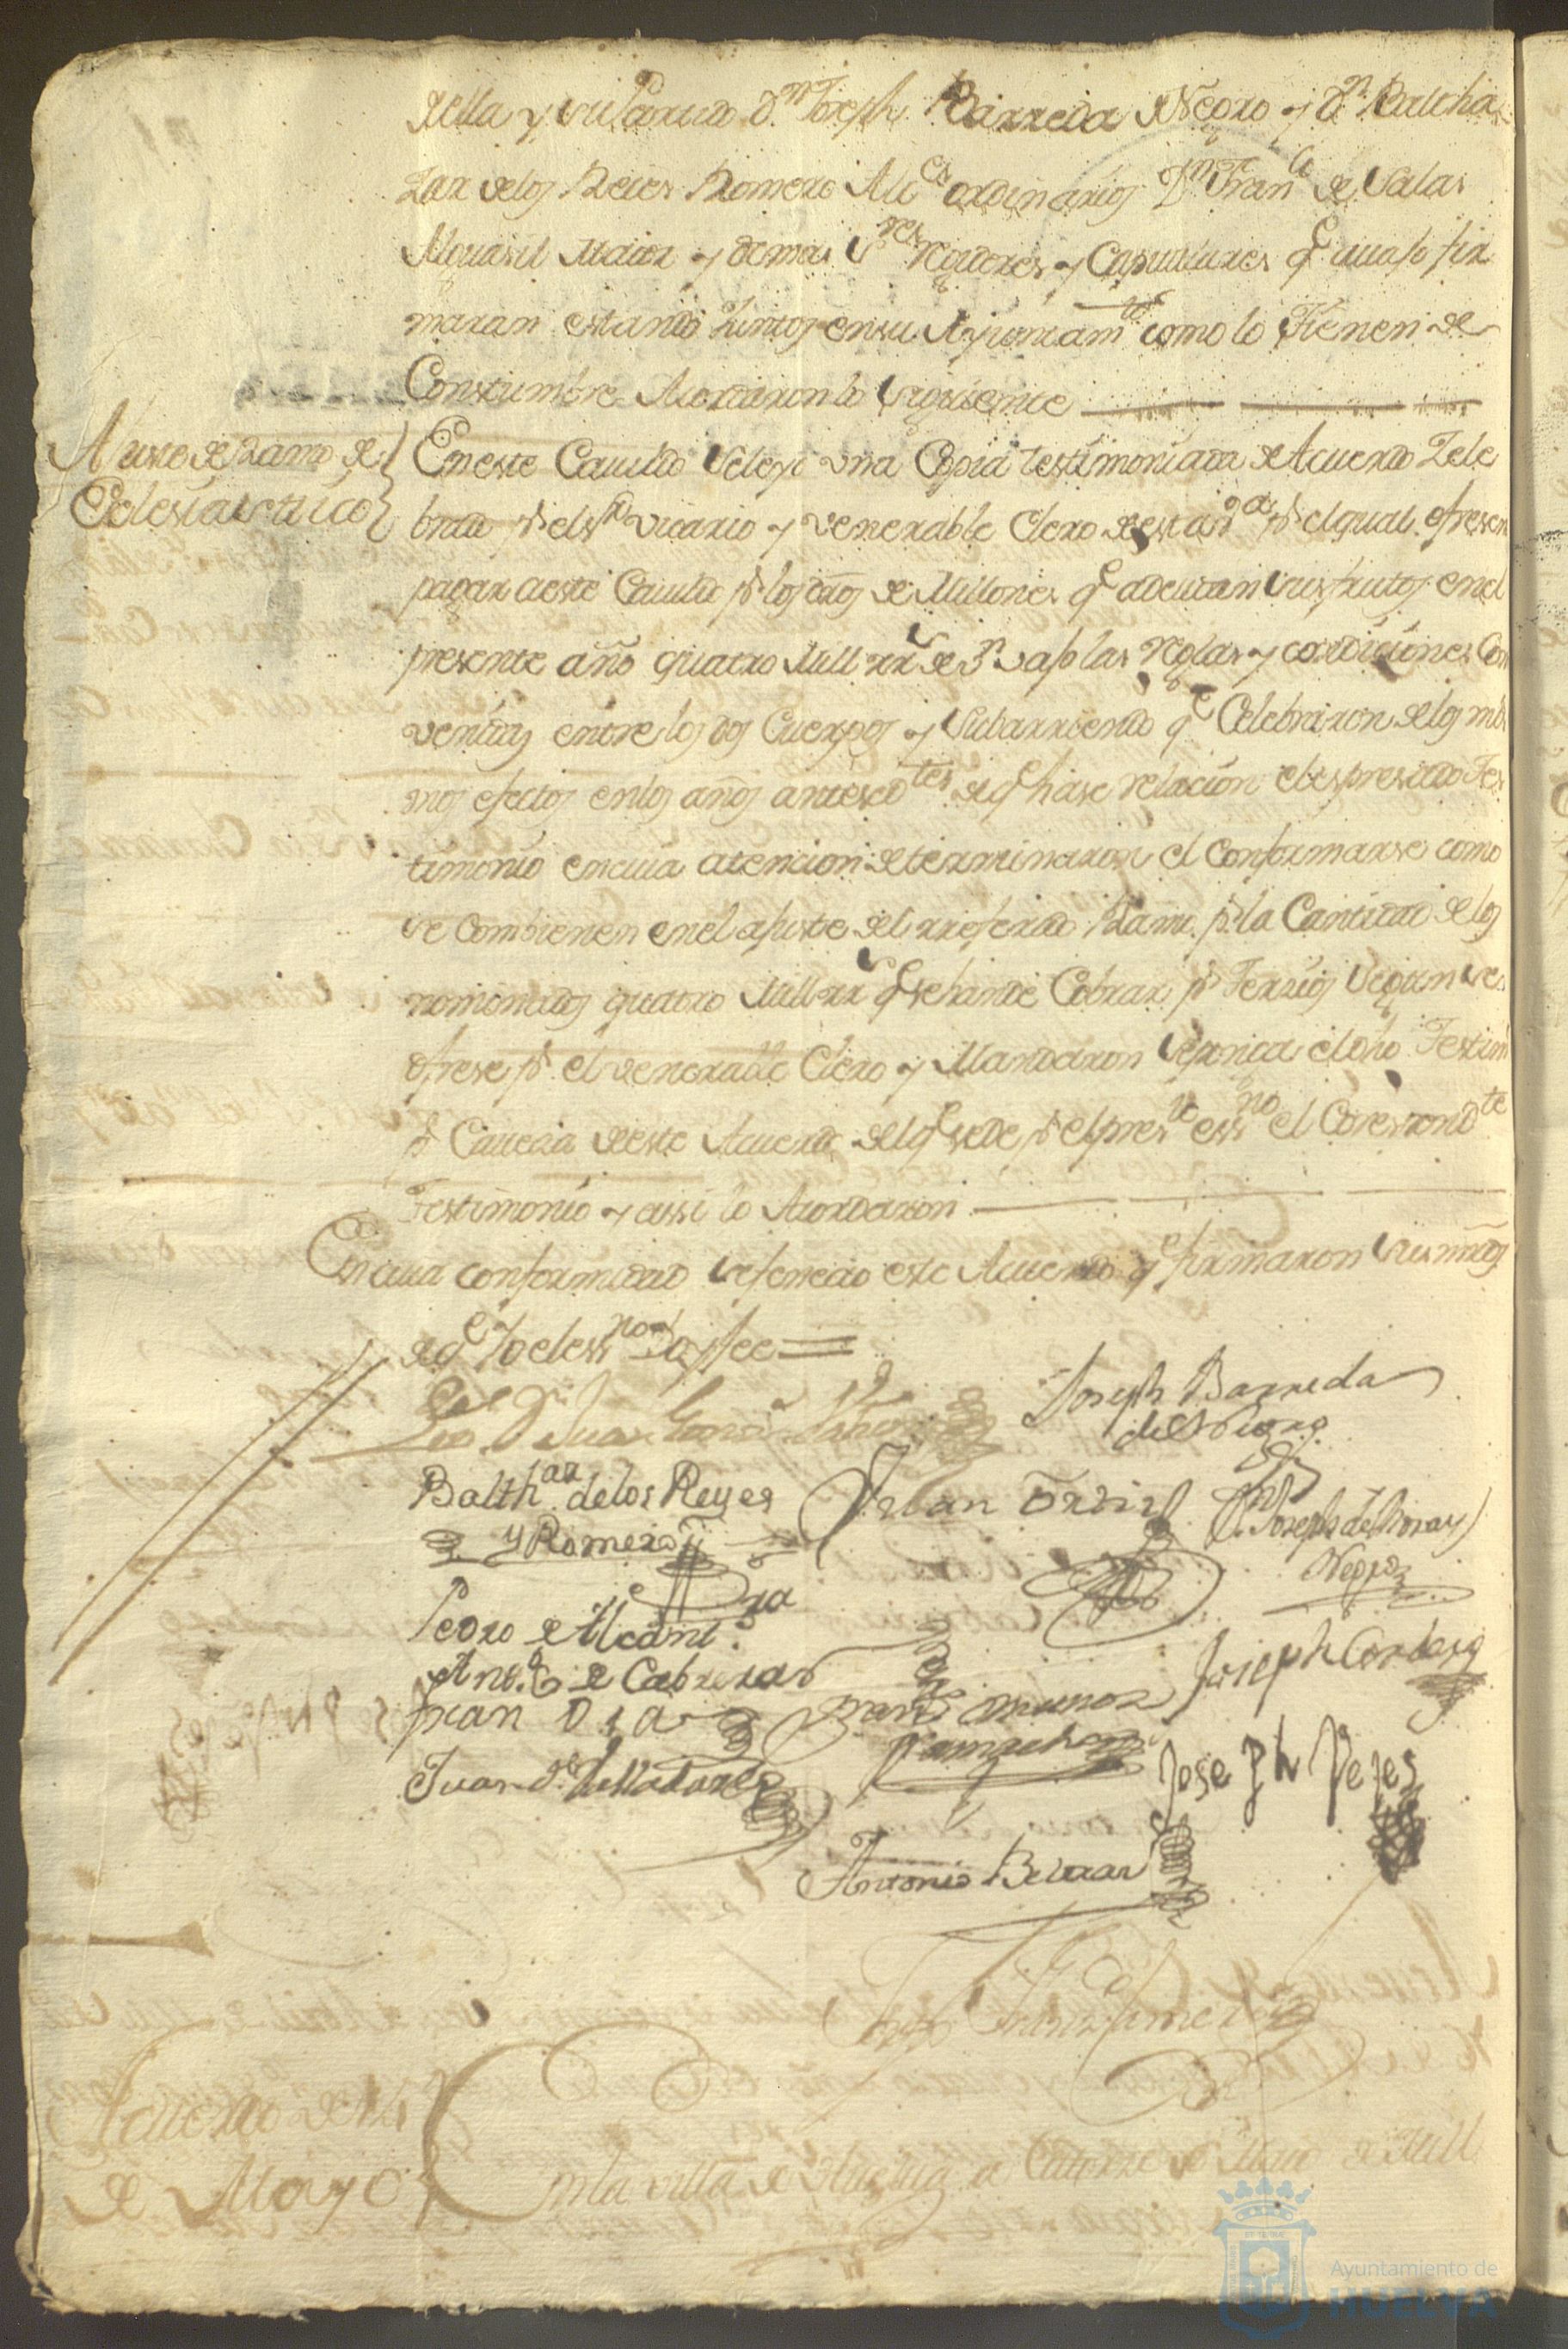 della y su Partido Dn Joseph Barreda de Negro y Dn Baltha
zar de los Reies Romero Alces ordinarios Dn Franco de Salas
Alguasil Maior y demas Sres Regidores y Capitulares qe auajo fir
maran estando Juntos en su Ayuntamto como lo tienen de
Constumbre Acordaron lo siguiente
Ajuste de Ramo de
Eclesiastico
En este Cauildo se leyo vna Copia testimoniada de Acuerdo Zele
brado pr el Sor Vicario y venerable Clero de esta va pr el qual ofresen
pagar a este Cauildo pr los dros de Millones qe adeudan sus frutos en el
presente año quatro Mill rrs de vn vajo las reglas y condiciones Con
venidas entre los dos Cuerpos y Subarriendo qe Celebraron de los mis
mos efectos en los años antesedtes de qe hase relacion el espresado Tes
timonio en cuia atencion determinaron el conformarse como
se combienen en el ajuste del rreferido Ramo pr la Cantidad de los
nominados quatro Mill rrs qe se han de Cobrar pr Terzios segun se
ofrese pr el venerable Clero y Mandaron se ponga el dho Testim
pr Caueza de este Acuerdo del qe se de pr el preste essno el Correspondte
Testimonio y assi lo Acordaron
En cuia conformidad se fenecio este Acuerdo qe firmaron sus mrds
de qe Yo el essno Doy fee
Joseph Barreda
de Negro
Balthar de los Reyes
y Romero
Juan
Joseph de
Negro
Pedro de Alcantra
Anto de Cabreras
Joseph Cordero
Juan Dias
Franco Munoz
Camacho
Juan de Valladares
Joseph Peres
Antonio Beltran
Acuerdo de 14
de Mayo
En la villa de Huelua a Catorze de Maio de Mill
Ayuntamiento de
HUELVA